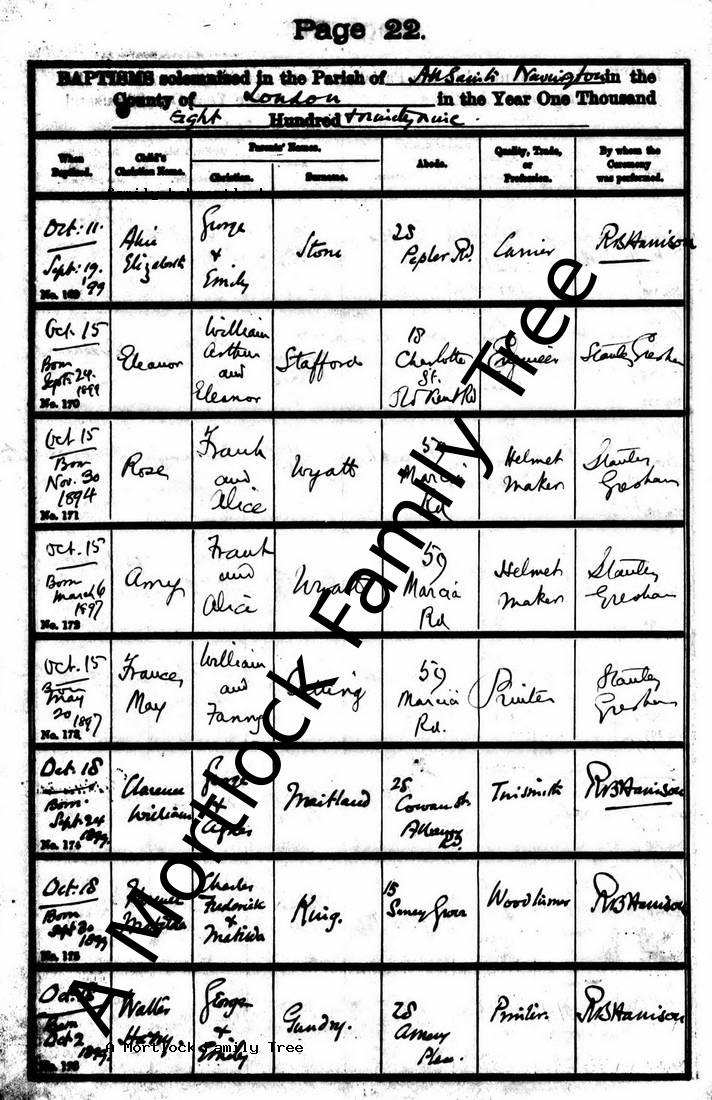 Page 22.
BAPTISMS solemnized in the Parish of All Saints Newington in the
County of London in the Year One Thousand
Eight Hundred & ninety nine.
When Baptized.
Child's Christian Name.
Parents' Names.
Christian.
Surname.
Abode.
Quality, Trade, or Profession.
By whom the Ceremony was performed.
Oct. 11.
Sept. 19.
'99
No. 169
Elizabeth
George
&
Emily
Stone
28
Pepler Rd.
Carrier
RBHarrison
Oct 15
Born
Sept 24.
1899
No. 170
Eleanor
William
Arthur
and
Eleanor
Stafford
18
Charlotte
St.
Old Kent Rd
Engineer
Stanley Gresham
Oct 15
Born
Nov. 30
1894
No. 171
Rose
Frank
and
Alice
Wyatt
59
Marcia
Rd
Helmet
Maker
Stanley
Gresham
Oct. 15
Born
March 6
1897
No. 172
Amy
Frank
and
Alice
Wyatt
59
Marcia
Rd.
Helmet
Maker
Stanley
Gresham
Oct. 15
Born
May
20 1897
No. 173
Frances
May
William
and
Fanny
59
Marcia
Rd.
Printer
Stanley
Gresham
Oct. 18
Born
Sept 24
1899.
No. 174
Clarence
William
George
Agnes
Maitland
28
Cowan St
Albany
Rd.
Tinsmith
RBHarrison
Oct. 18
Born
1899
No. 175
Matilda
Charles
Frederick
&
Matilda
King.
15
Grove
Wood turner
RBHarrison
Oct. 18
Born
Oct 2
1899.
No. 176
Walter
Harry.
George
&
Emily
Gundry.
28
Place.
Printer.
RBHarrison
A Mortlock Family Tree
A Mortlock Family Tree